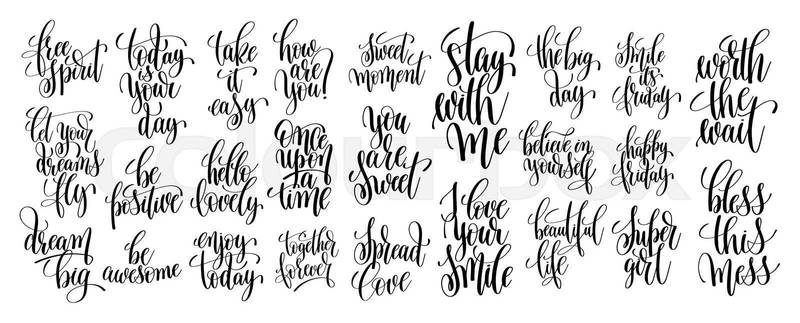 free
spirit
let your
dreams
fly
dream
big
today
is
your
day
be
positive
be
awesome
take
it
easy
hello
lovely
enjoy
today
how
are
you?
Once
upon
a
time
together
forever
Sweet
moment
you
are
sweet
Spread
Love
stay
with
me
I love
your
smile
the big
day
believe in
yourself
beautiful
life
Smile
it's
friday
happy
friday
Super
girl
worth
the
wait
bless
this
mess
colourbox